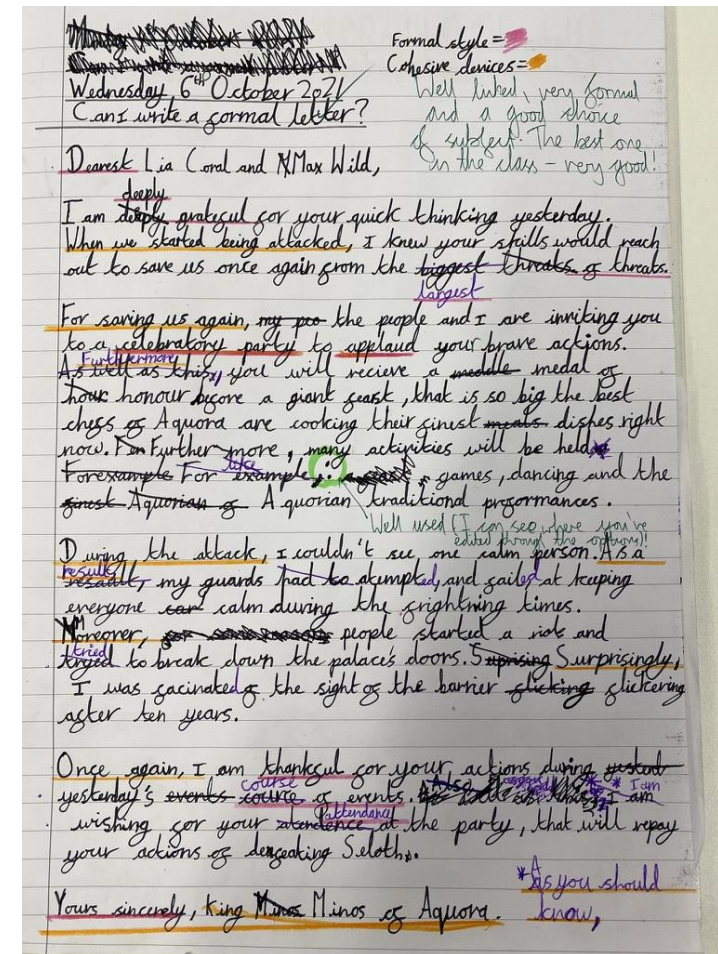 Formal style =
Cohesive devices =
Wednesday 6th October 2021
Can I write a formal letter?
Well liked, very formal
and a good choice
of subject. The best one
in the class - very good!
Dearest Lia Coral and Max Wild,
deeply
I am deeply grateful for your quick thinking yesterday.
When we started being attacked, I knew your skills would reach
out to save us once again from the biggest threats. of threats.
largest
For saving us again, my peo the people and I are inviting you
to a celebratory party to applaud your brave actions.
Furthermore
As well as this, you will recieve a meddle medal of
hour honour before a giant feast, that is so big the best
chefs of Aquora are cooking their finest meals dishes right
now. Fun Further more, many activities will be held
like
For example For example, games, dancing and the
finest Aquorian of Aquorian traditional preformances.
Well used (I can see where you've
edited through the options)!
During the attack, I couldn't see one calm person. As a
result
resault, my guards had to atempted, and failed at keeping
everyone car calm during the frightning times.
Moreover, people started a riots and
tried
tryed to break down the palace's doors. Suprising Surprisingly,
I was facinated of the sight of the barrier flicking flickering
after ten years.
Once again, I am thankful for your actions during yesterd
course
yesterday's events cource of events. * I am
attendance
wishing for your atendence at the party, that will repay
your actions of defeating Seloth.
* As you should
know,
Yours sincerely, King Minos Minos of Aquora.